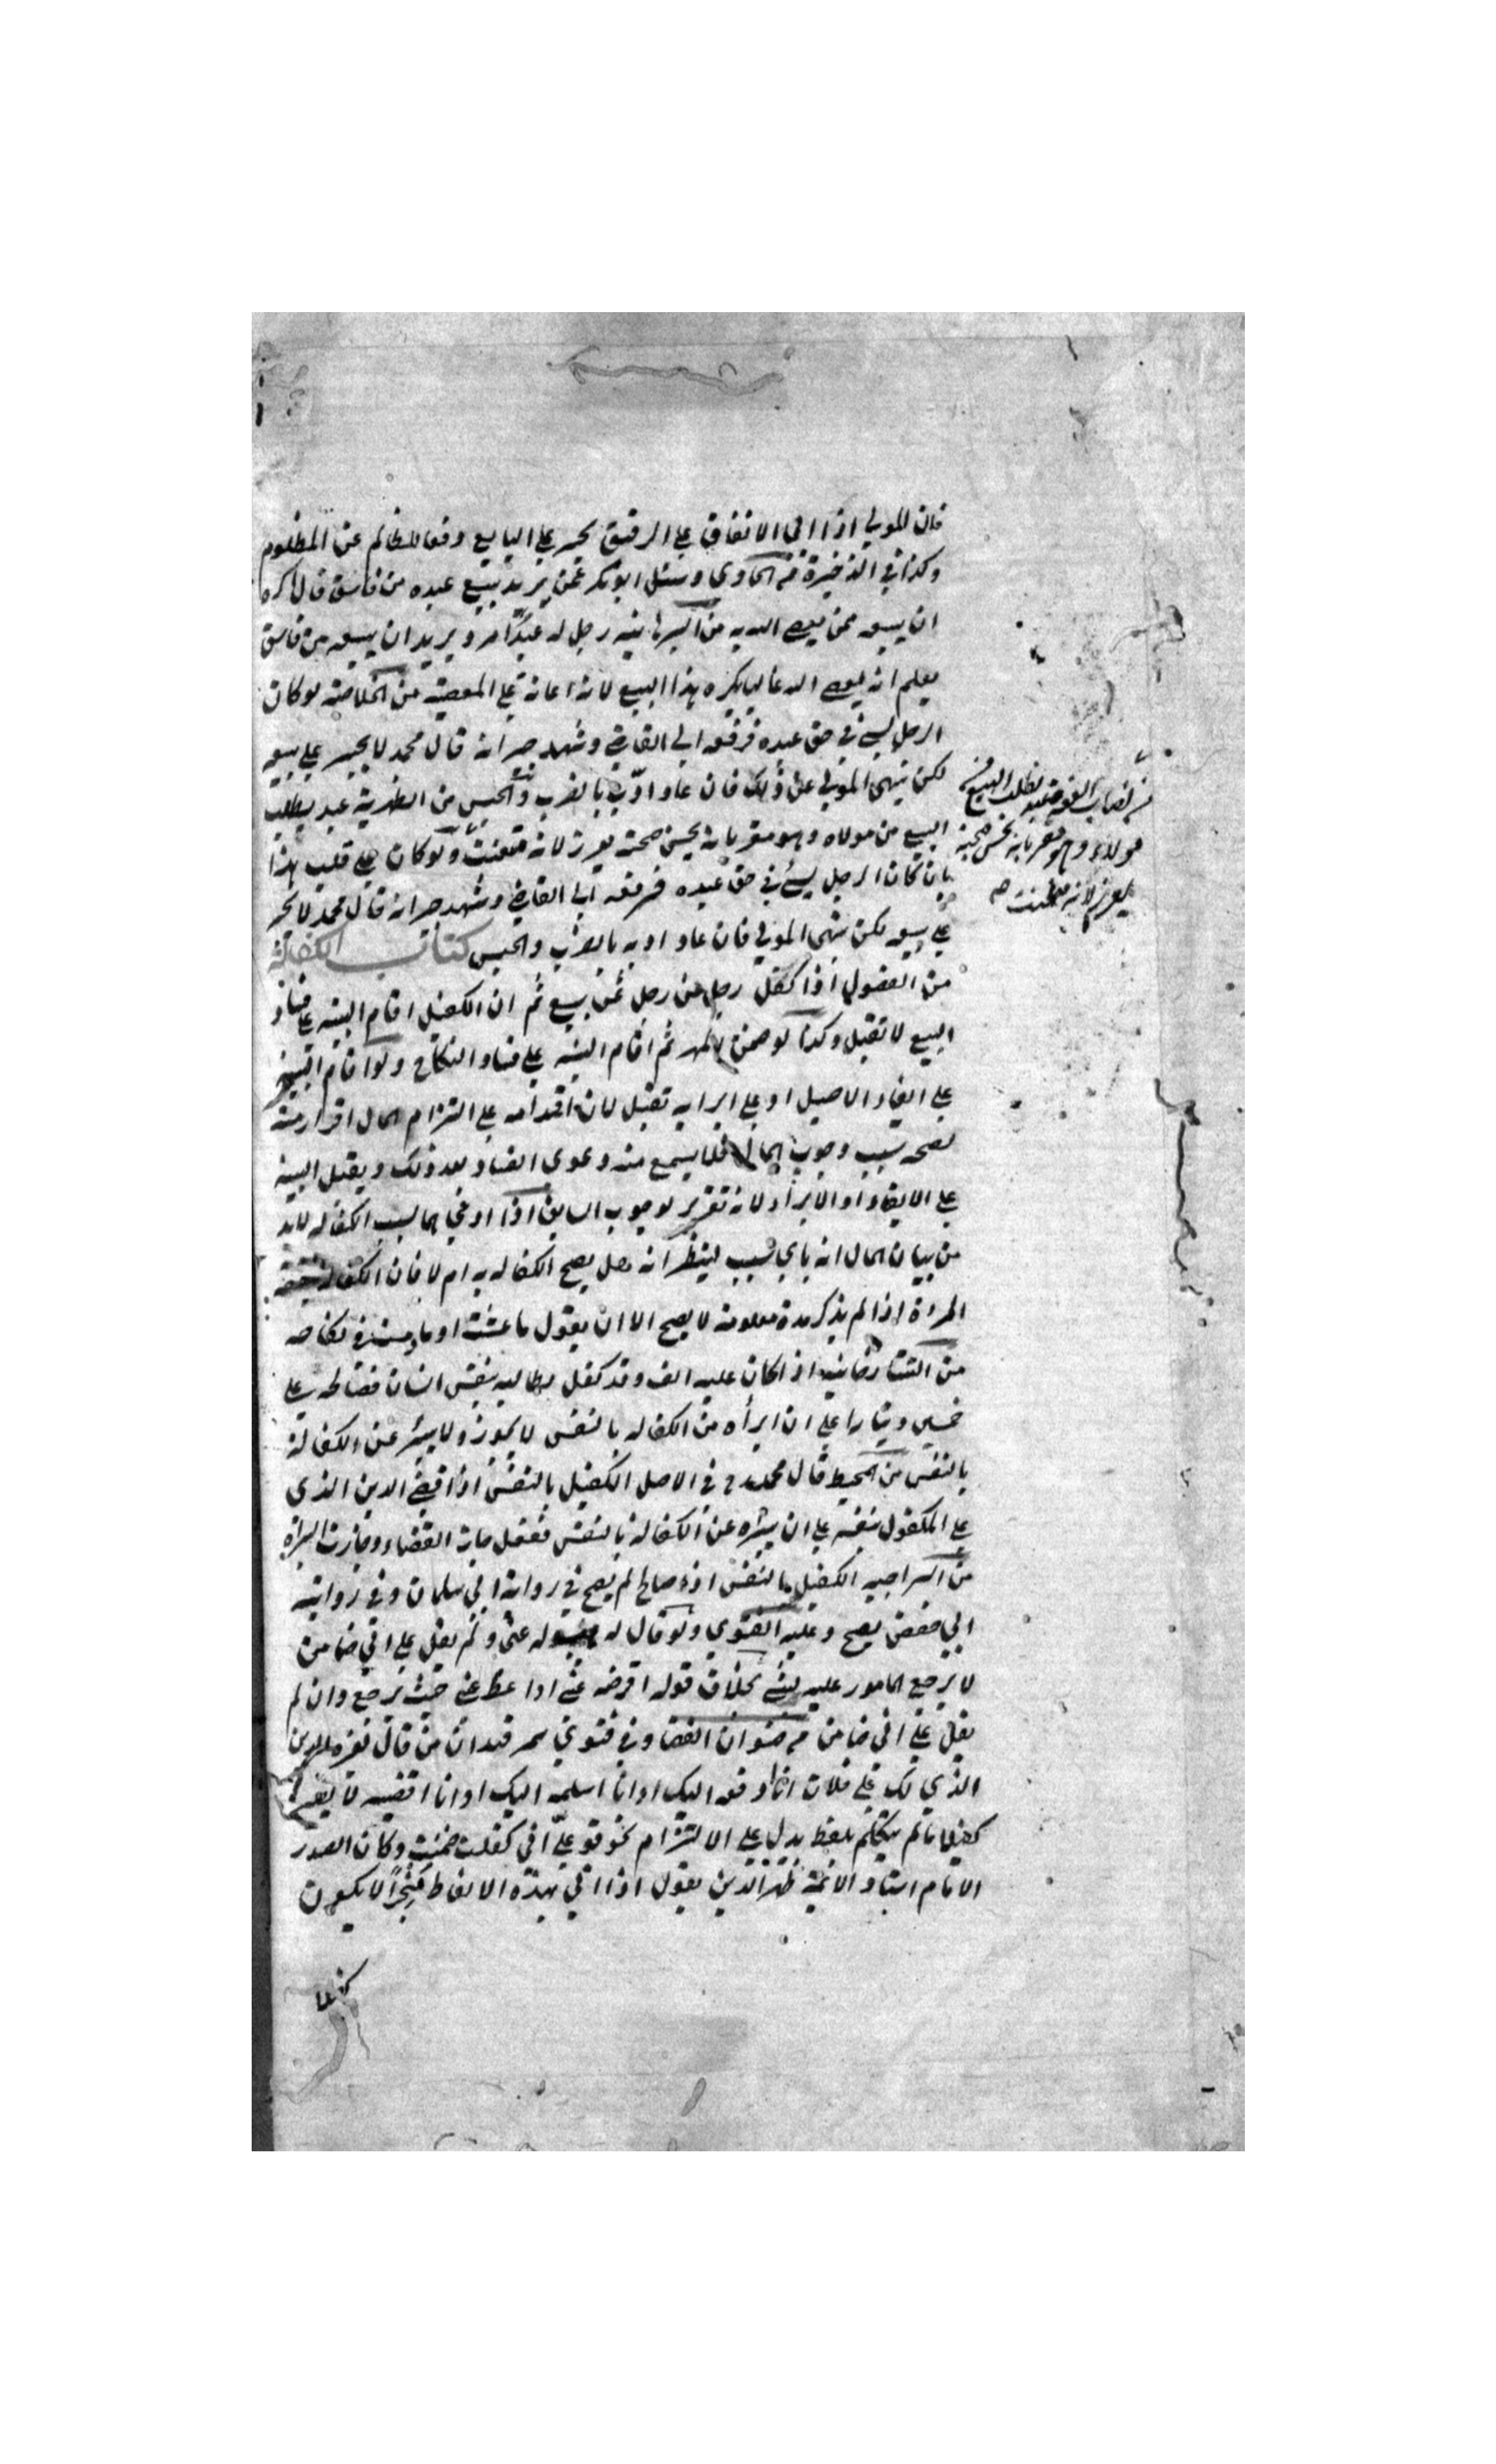 فان المولي اذا ابي الانفاق علي الرقيق يجبر علي البايع دفعا للظالم عن المظلوم
وكذا في الذخيرة من الحاوي وسئل ابو بكر عمن يريد بيع عبده من فاسق قال اكره
ان يبيعه ممن يعصي الله به من رجل له عبد امرد ويريد ان يبيعه من فاسق
يعلم انه يعصي الله غالبا يكره هذا البيع لانه اعانة علي المعصية من الخلاصة لو كان
الرجل يسئ في حق عبده فرفعه الي القاضي وشهد جيرانه قال محمد لا يجبر علي بيعه
لكن ينهي المولي عن ذلك فان عاد ادّب بالضرب والحبس من الظهيرية عبد يطلب
البيع من مولاه وهو مقر بانه يحسن صحبته يعزر لانه متعنت ولو كان علي قلب هذا
بان كان الرجل يسئ في حق عبده فرفعه الي القاضي وشهد جيرانه قال محمد لا يجبر
علي بيعه لكن ينهي المولي فان عاد ادبه بالضرب والحبس كتاب الكفالة
من الفصول اذا كفل رجل عن رجل بثمن بيع ثم ان الكفيل اقام البينه علي فساد
البيع لا تقبل وكذا لو ضمن المهر ثم اقام البينه علي فساد النكاح ولو اقام البينة
علي ايفاء الاصيل او علي ابرايه تقبل لان اقدامه علي التزام المال اقرار منه
بصحه سبب وجوب المال فلا يسمع منه دعوي الفساد بعد ذلك ويقبل البينه
علي الايفاء او الابراء لانه تقرير لوجوب السابق اذا ادعي مالا بسبب الكفاله لابد
من بيان المال انه باي سبب لينظر انه هل يصح الكفاله به ام لا فان الكفالة بنفقة
المراة اذا لم يذكر مدة معلومة لا يصح الا ان يقول ما عشت او ما دمت في نكاحه
من التتارخانيه اذا كان عليه الف وقد كفل لطالبه بنفس انسان فصالحه علي
خمسين دينارا علي ان ابرأه من الكفاله بالنفس لا يجوز ولا يبرئ عن الكفالة
بالنفس من المحيط قال محمد رح في الاصل الكفيل بالنفس اذا قضي الدين الذي
علي المكفول بنفسه علي ان يبرئه عن الكفالة بالنفس ففعل جاز القضاء وجازت البراءة
من السراجيه الكفيل بالنفس اذا صالح لم يصح في رواية ابي سليمان وفي رواية
ابي حفص يصح وعليه الفتوي ولو قال له عني ولم يقل علي اني ضامن
لا يرجع المامور عليه بشئ بخلاف قوله اقرضه عني او اعط عني حيث يرجع وان لم
يقل علي اني ضامن من صنوان القضا وفي فتوي سمرقند ان من قال لغيره الدين
الذي لك علي فلان انا ادفعه اليك او انا اسلمه اليك او انا اقضيه لا يصير
كفيلا ما لم يتكلم بلفظ يدل علي الالتزام نحو قوله عليّ اني كفلت ضمنت وكان الصدر
الامام استاد الائمة ظهير الدين يقول اذا اتي بهذه الالفاظ منجزاً لا يكون
من نصاب الفقه عبد يطلب البيع من
مولاه وهو مقر بانه يحسن صحبته
يعزر لانه متعنت صح